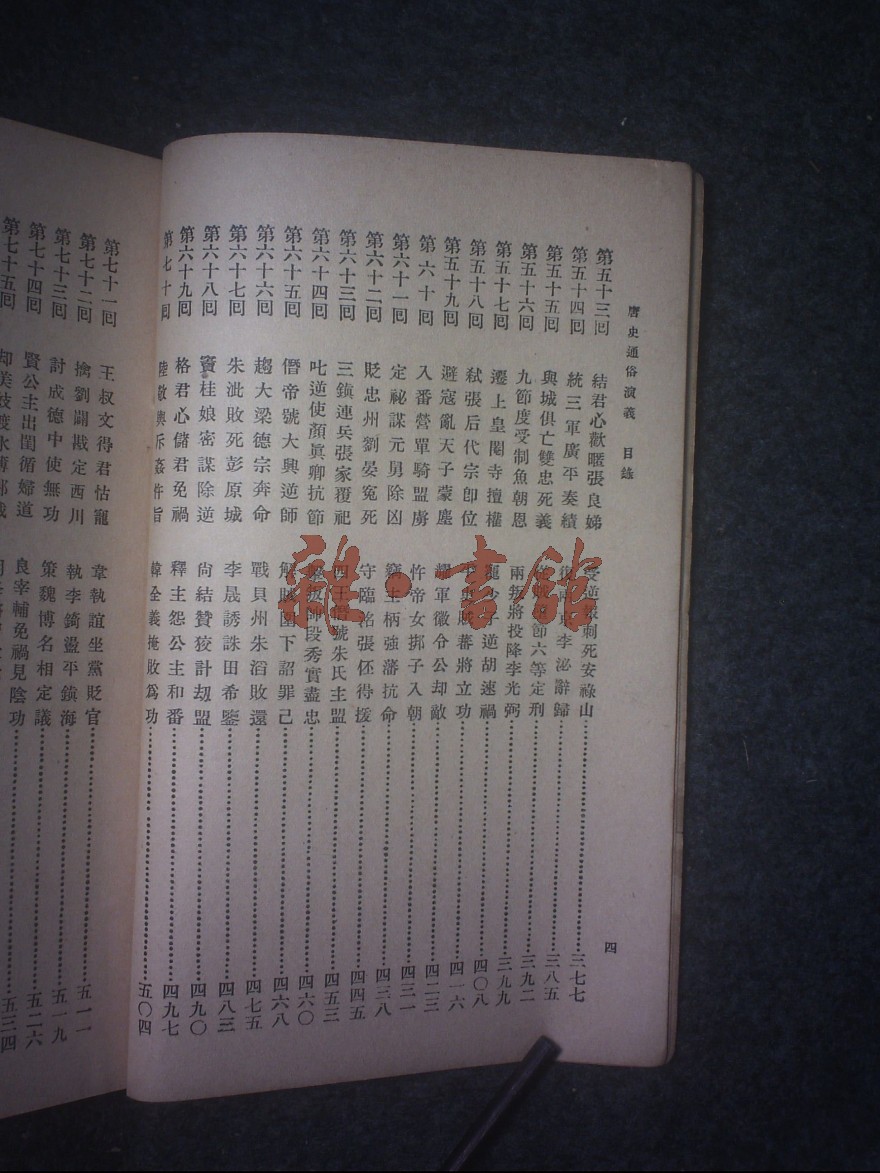 唐史通俗演義 目錄
四
第五十三回 結君心歡暱張良娣 受逆報刺死安祿山 三七七
第五十四回 統三軍廣平奏績 復兩京李泌辭歸 三八五
第五十五回 與城俱亡雙忠死義 節六等定刑 三九二
第五十六回 九節度受制魚朝恩 兩叛將投降李光弼 三九九
第五十七回 遷上皇閹寺擅權 寵少子逆胡速禍 四〇八
第五十八回 弒張后代宗卽位 賊蕃將立功 四一六
第五十九回 避寇亂天子蒙塵 耀軍徽令公却敵 四二三
第六十回 入番營單騎盟虜 忤帝女挷子入朝 四三一
第六十一回 定祕謀元舅除凶 竊主柄強藩抗命 四三八
第六十二回 貶忠州劉晏冤死 守臨洺張伾得援 四四五
第六十三回 三鎭連兵張家覆祀 四王僭號朱氏主盟 四五三
第六十四回 叱逆使顏眞卿抗節 擊叛帥段秀實盡忠 四六〇
第六十五回 僭帝號大興逆師 解賊圍下詔罪己 四六八
第六十六回 趨大梁德宗奔命 戰貝州朱滔敗還 四七五
第六十七回 朱泚敗死彭原城 李晟誘誅田希鑒 四八三
第六十八回 竇桂娘密謀除逆 尚結贊狡計刼盟 四九〇
第六十九回 格君心儲君免禍 釋主怨公主和番 四九七
第七十回 陸敬輿斥姦忤旨 韓全義掩敗爲功 五〇四
第七十一回 王叔文得君怙寵 韋執誼坐黨貶官 五一一
第七十二回 擒劉闢戡定西川 執李錡盪平鎭海 五一九
第七十三回 討成德中使無功 策魏博名相定議 五二六
第七十四回 賢公主出閨循婦道 良宰輔免禍見陰功 五三四
第七十五回 却美妓渡水
雜·書館